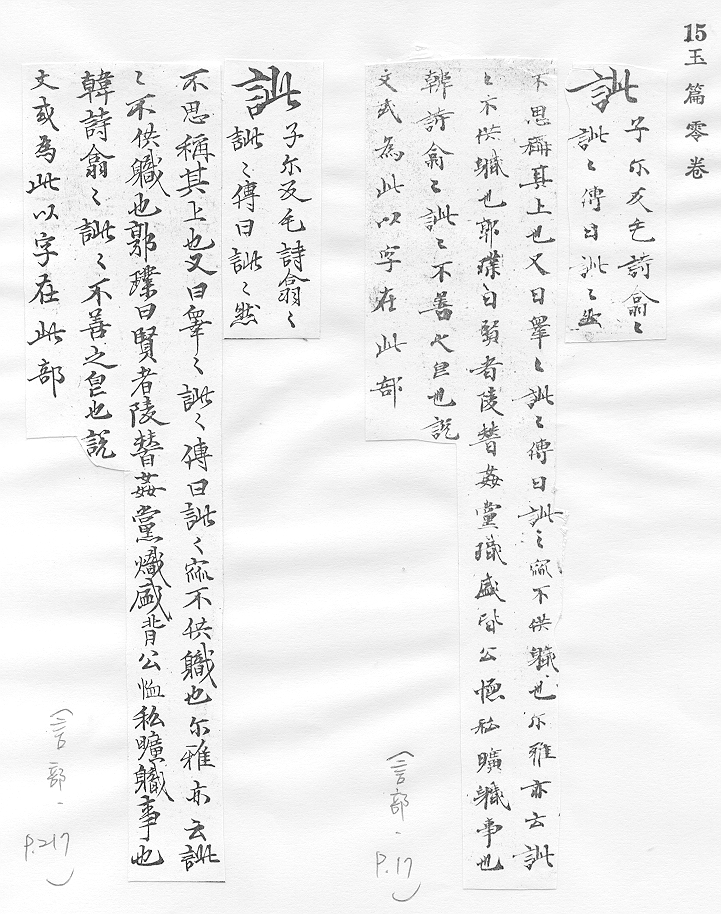 15玉篇零卷
訿
子尓反毛詩翕〻
訿〻傳曰訿〻然
不思稱其上也又曰睾〻訿〻傳曰訿〻窳不供軄也尓雅亦云訿
〻不供軄也郭璞曰賢者陵替姦黨熾盛背公恤私曠軄事也
韓詩翕〻訿〻不善之皃也說
文或為此以字在此部
(言部.
P.17)
訿
子尓反毛詩翕〻
訿〻傳曰訿〻然
不思稱其上也又曰睾〻訿〻傳曰訿〻窳不供軄也尓雅亦云訿
〻不供軄也郭璞曰賢者陵替姦黨熾盛背公恤私曠軄事也
韓詩翕〻訿〻不善之皃也說
文或為此以字在此部
(言部.
P.217)